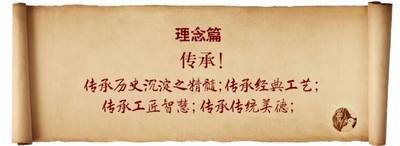 理念篇
传承!
传承历史沉淀之精髓;传承经典工艺;
传承工匠智慧;传承传统美德;